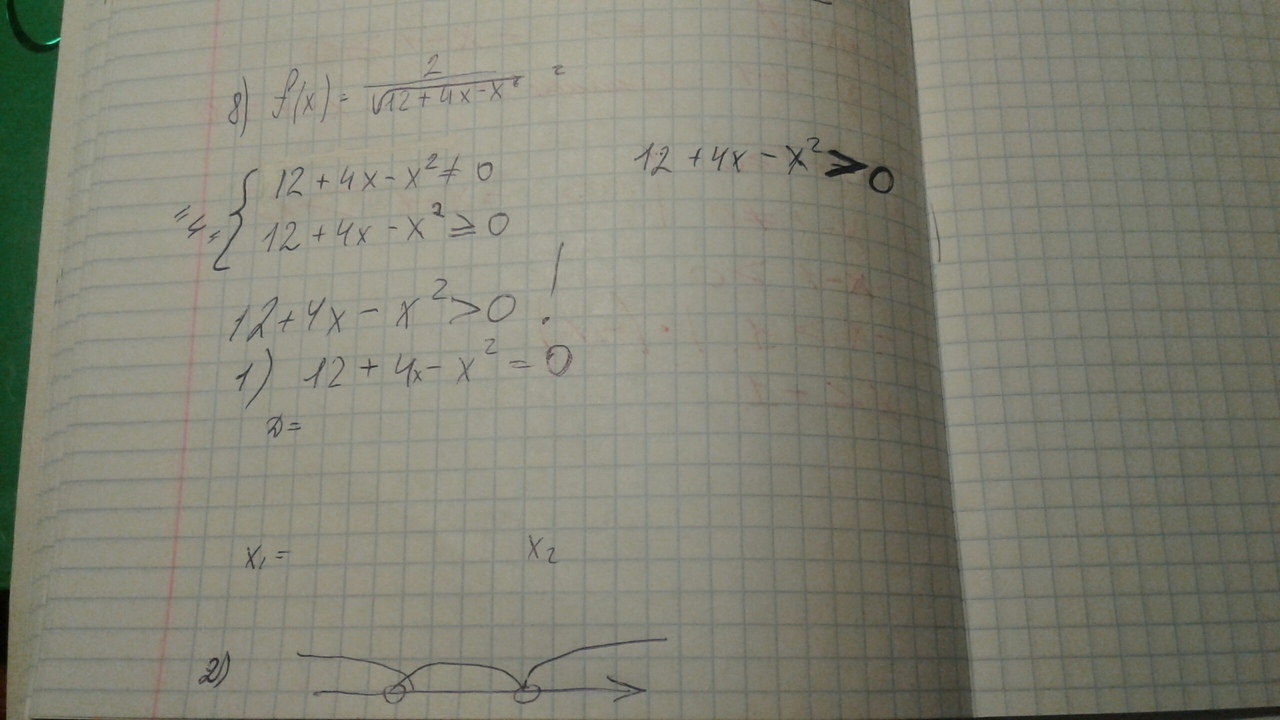 8) f(x) = 2/√12+4x-x² ²
12 + 4x - x² ≠ 0
12 + 4x - x² ⩾ 0
"4"
12 + 4x - x² > 0
12 + 4x - x² > 0 !
1) 12 + 4x - x² = 0
D =
x₁ = x₂
2)